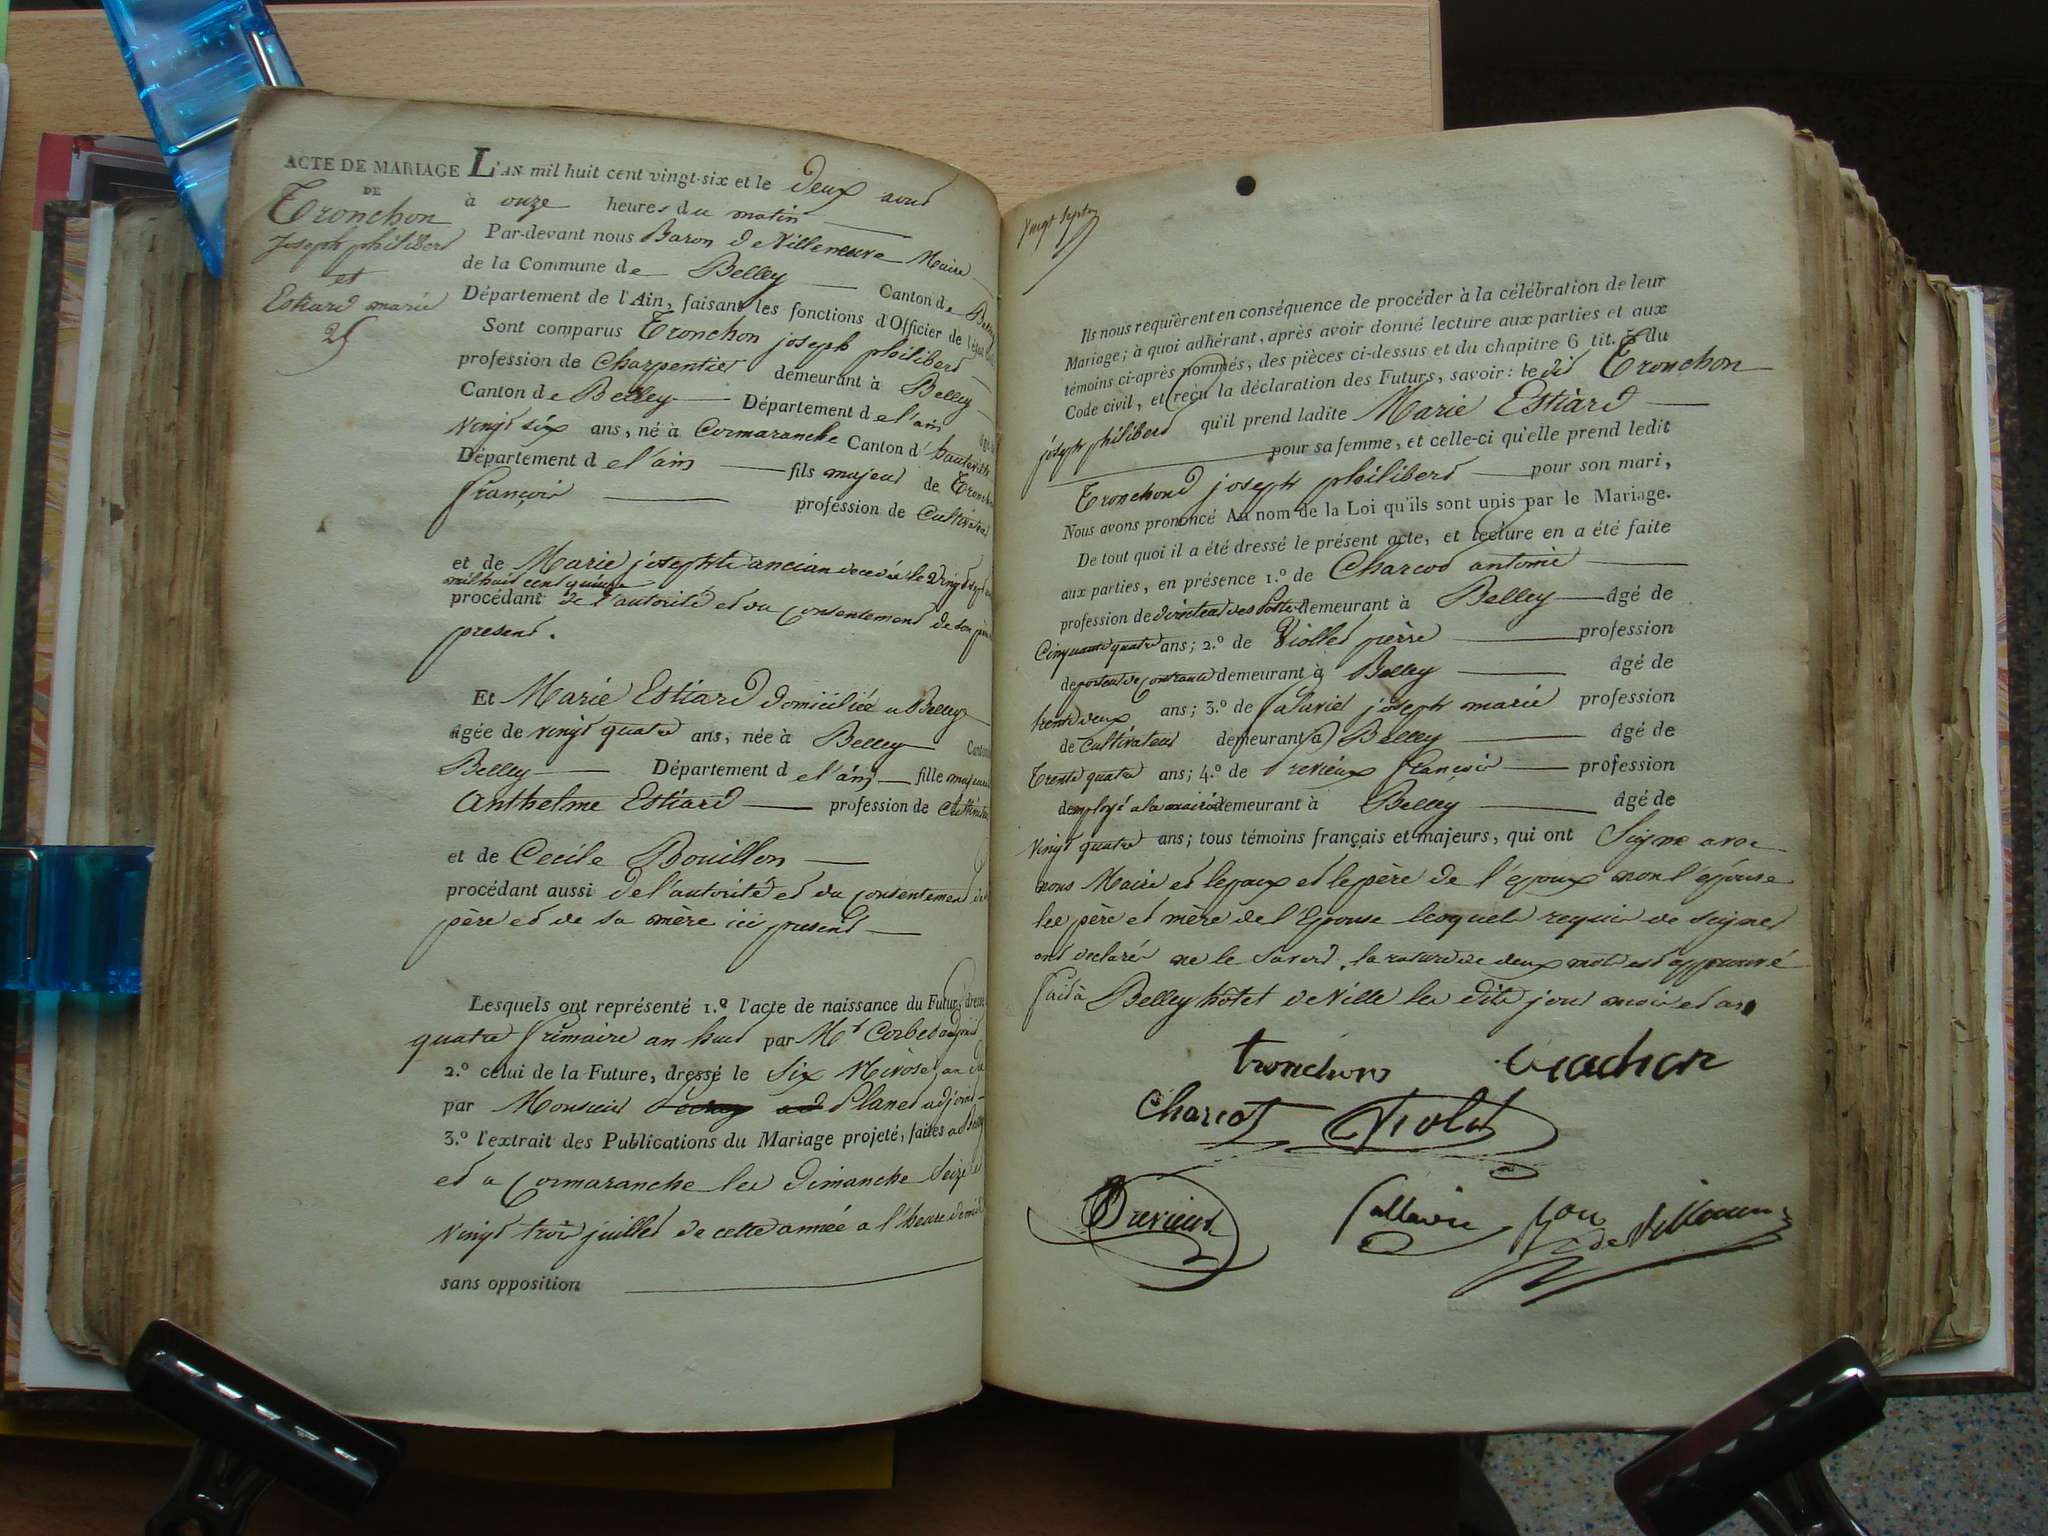 ACTE DE MARIAGE
DE
Tronchon
Joseph philibert
et
Estiard marie
25
L'AN mil huit cent vingt-six et le deux aout
à onze heures du matin
Par-devant nous Baron de Villeneuve Maire
de la Commune de Belley Canton de Belley
Département de l'Ain, faisant les fonctions d'Officier de l'état
Sont comparus Tronchon joseph philibert
profession de Charpentier demeurant à Belley
Canton de Belley Département de l'ain
vingt six ans, né à Cormaranche Canton d'hauteville
Département de l'ain fils majeur de Tronchon
françois profession de Cultivateur
et de Marie josephte ancian decedée le vingt sept
mil huit cent quinze
procédant de l'autorité et du consentement de son père
present.
Et Marie Estiard domiciliée a Belley
âgée de vingt quatre ans, née à Belley Canton
Belley Département de l'ain fille majeure
Anthelme Estiard profession de cultivateur
et de Cecile Bouillon
procédant aussi de l'autorité et du consentement de
père et de sa mère ici present
Lesquels ont représenté 1.º l'acte de naissance du Futur, dressé
quatre frimaire an huit par Mr Corbet adjoint
2.º celui de la Future, dressé le six Nivose an dix
par Monsieur Planet adjoint
3.º l'extrait des Publications du Mariage projeté, faites a Belley
et a Cormaranche les dimanche seize et
vingt trois juillet de cette année a l'heure de midi
sans opposition
vingt sept
Ils nous requièrent en conséquence de procéder à la célébration de leur
Mariage; à quoi adhérant, après avoir donné lecture aux parties et aux
témoins ci-après nommés, des pièces ci-dessus et du chapitre 6 tit. 5 du
Code civil, et reçu la déclaration des Futurs, savoir: le dit Tronchon
joseph philibert qu'il prend ladite Marie Estiard
pour sa femme, et celle-ci qu'elle prend ledit
Tronchond joseph philibert pour son mari,
Nous avons prononcé Au nom de la Loi qu'ils sont unis par le Mariage.
De tout quoi il a été dressé le présent acte, et lecture en a été faite
aux parties, en présence 1.º de Charcot antoine
profession de directeur des Postes demeurant à Belley âgé de
Cinquante quatre ans; 2.º de Viollet pierre profession
de porteur de contrainte demeurant à Belley âgé de
trente deux ans; 3.º de Salavie joseph marie profession
de Cultivateur demeurant à Belley âgé de
Trente quatre ans; 4.º de Brevieux françois profession
d'employé a la mairie demeurant à Belley âgé de
vingt quatre ans; tous témoins français et majeurs, qui ont Signe avec
nous Maire et lepoux et le père de l'epoux non l'épouse
les père et mère de l'Epouse lesquels requis de signer
ont declarés ne le savoir. la rature de deux mots est approuvé
fait à Belley hôtel de Ville les dits jour mois et an
tronchon
Charcot Violet
Brevieux